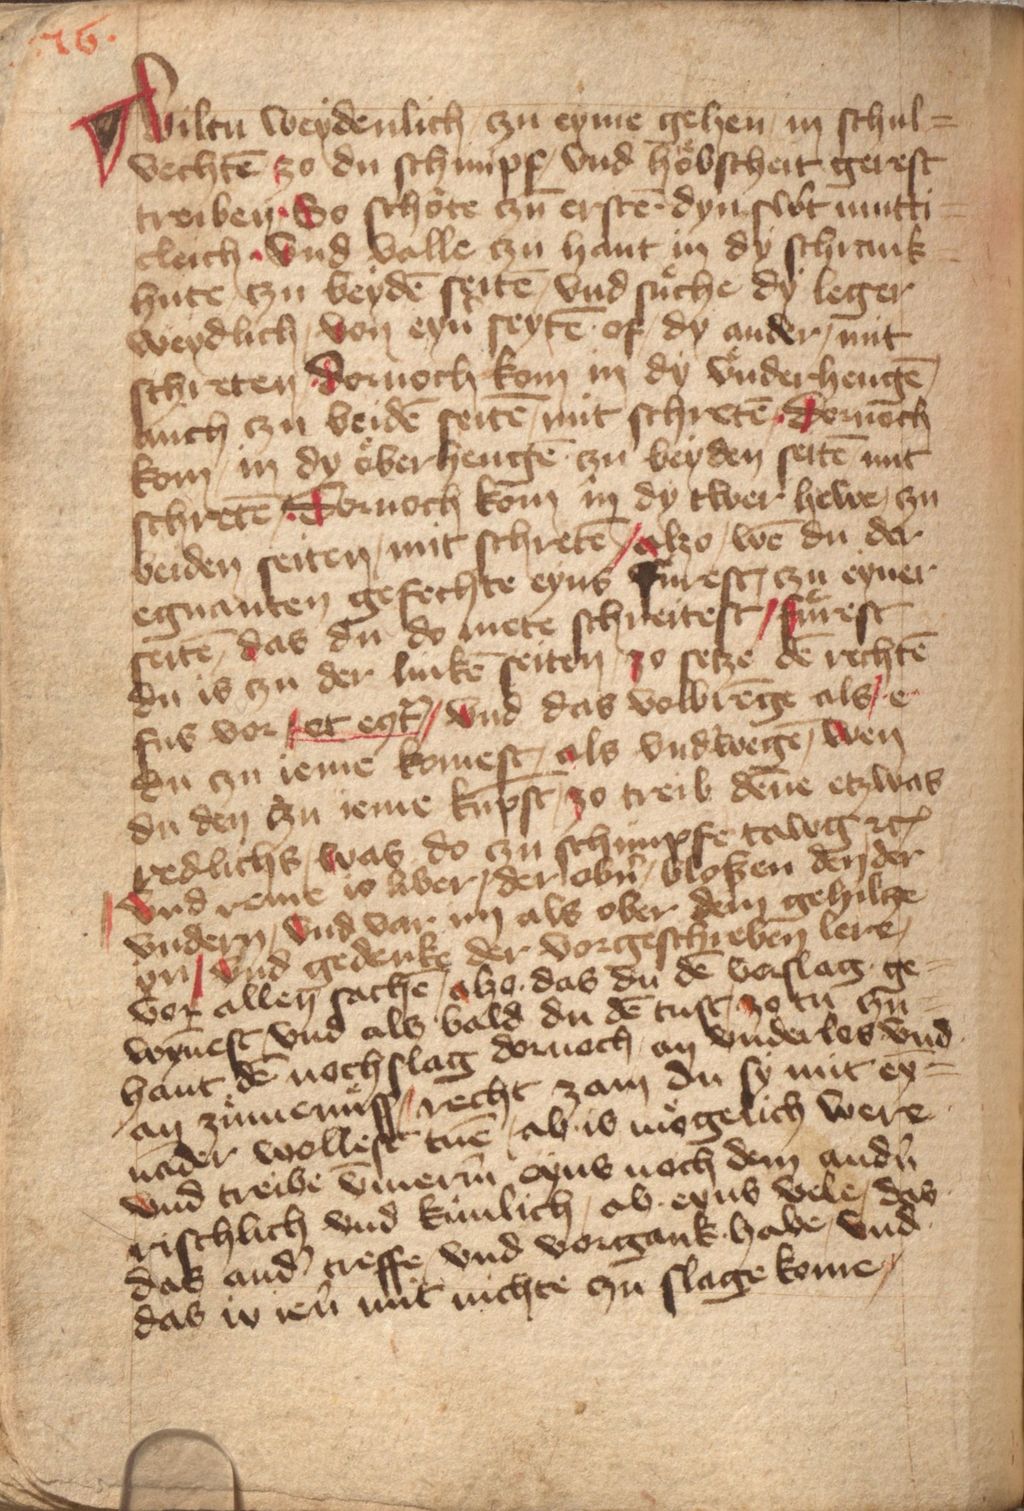 16.
Wiltu weydenlich czu eyme gehen / in schul=
vechtē zo du schimpf / vnd hőbscheit gerest
treiben · So schőte czū erstē dyn sw't mutti=
cleich · Vnd valle czu hant in dy schrank=
hute czu beydē seitē / vnd sůche dy leger
weydlich / von eyn seytē of dy ander / mit
schreten Dornoch kom in dy vnderhengē /
auch czu beidē seitē / mit schretē · Dornoch
kom / in dy őberhengē czu beyden seitē mit
schretē · Dornoch kom in dy twer hewe / czu
beiden seiten / mit schretē / alzo / wē du der
egnanten gefechte eyns fůrest / czu eyner
seitē / das du do mete schreitest / fůrest
du is czu der linkē seiten / zo setze dē rechtē
fus vor / et eqr̄ // Vnd das volbrēge als / e
du czu ieme komest / als vndwegē / wen
du den czu ieme kūpst / zo treib dēne etzwas
redlichs / was do czu schimpfe tawg rc͛
Vnd reme io liber / der obn̄ / blossen den der
vndern / Vnd var im als ober dem gehilcze
yn / Vnd gedenke der vorgeschreben lere /
vor allen sachē / alzo das du dē vorslag ge=
wȳnest / vnd als bald du dē tust / zo tu czu=
hant dē nochslag dornoch / an vnderlos vnd
an zůmenůss // recht zam du sy mit ey=
nāder wollest tuē / ab is mőgelich were
vnd treibe ūmerm̄ eyns noch dem andn̄
rischlich vnd kůnlich / ab eyns vele / das
das and' treffe / vnd vorgank habe / vnd
das io ien̄ mit nichte czu slage kome //